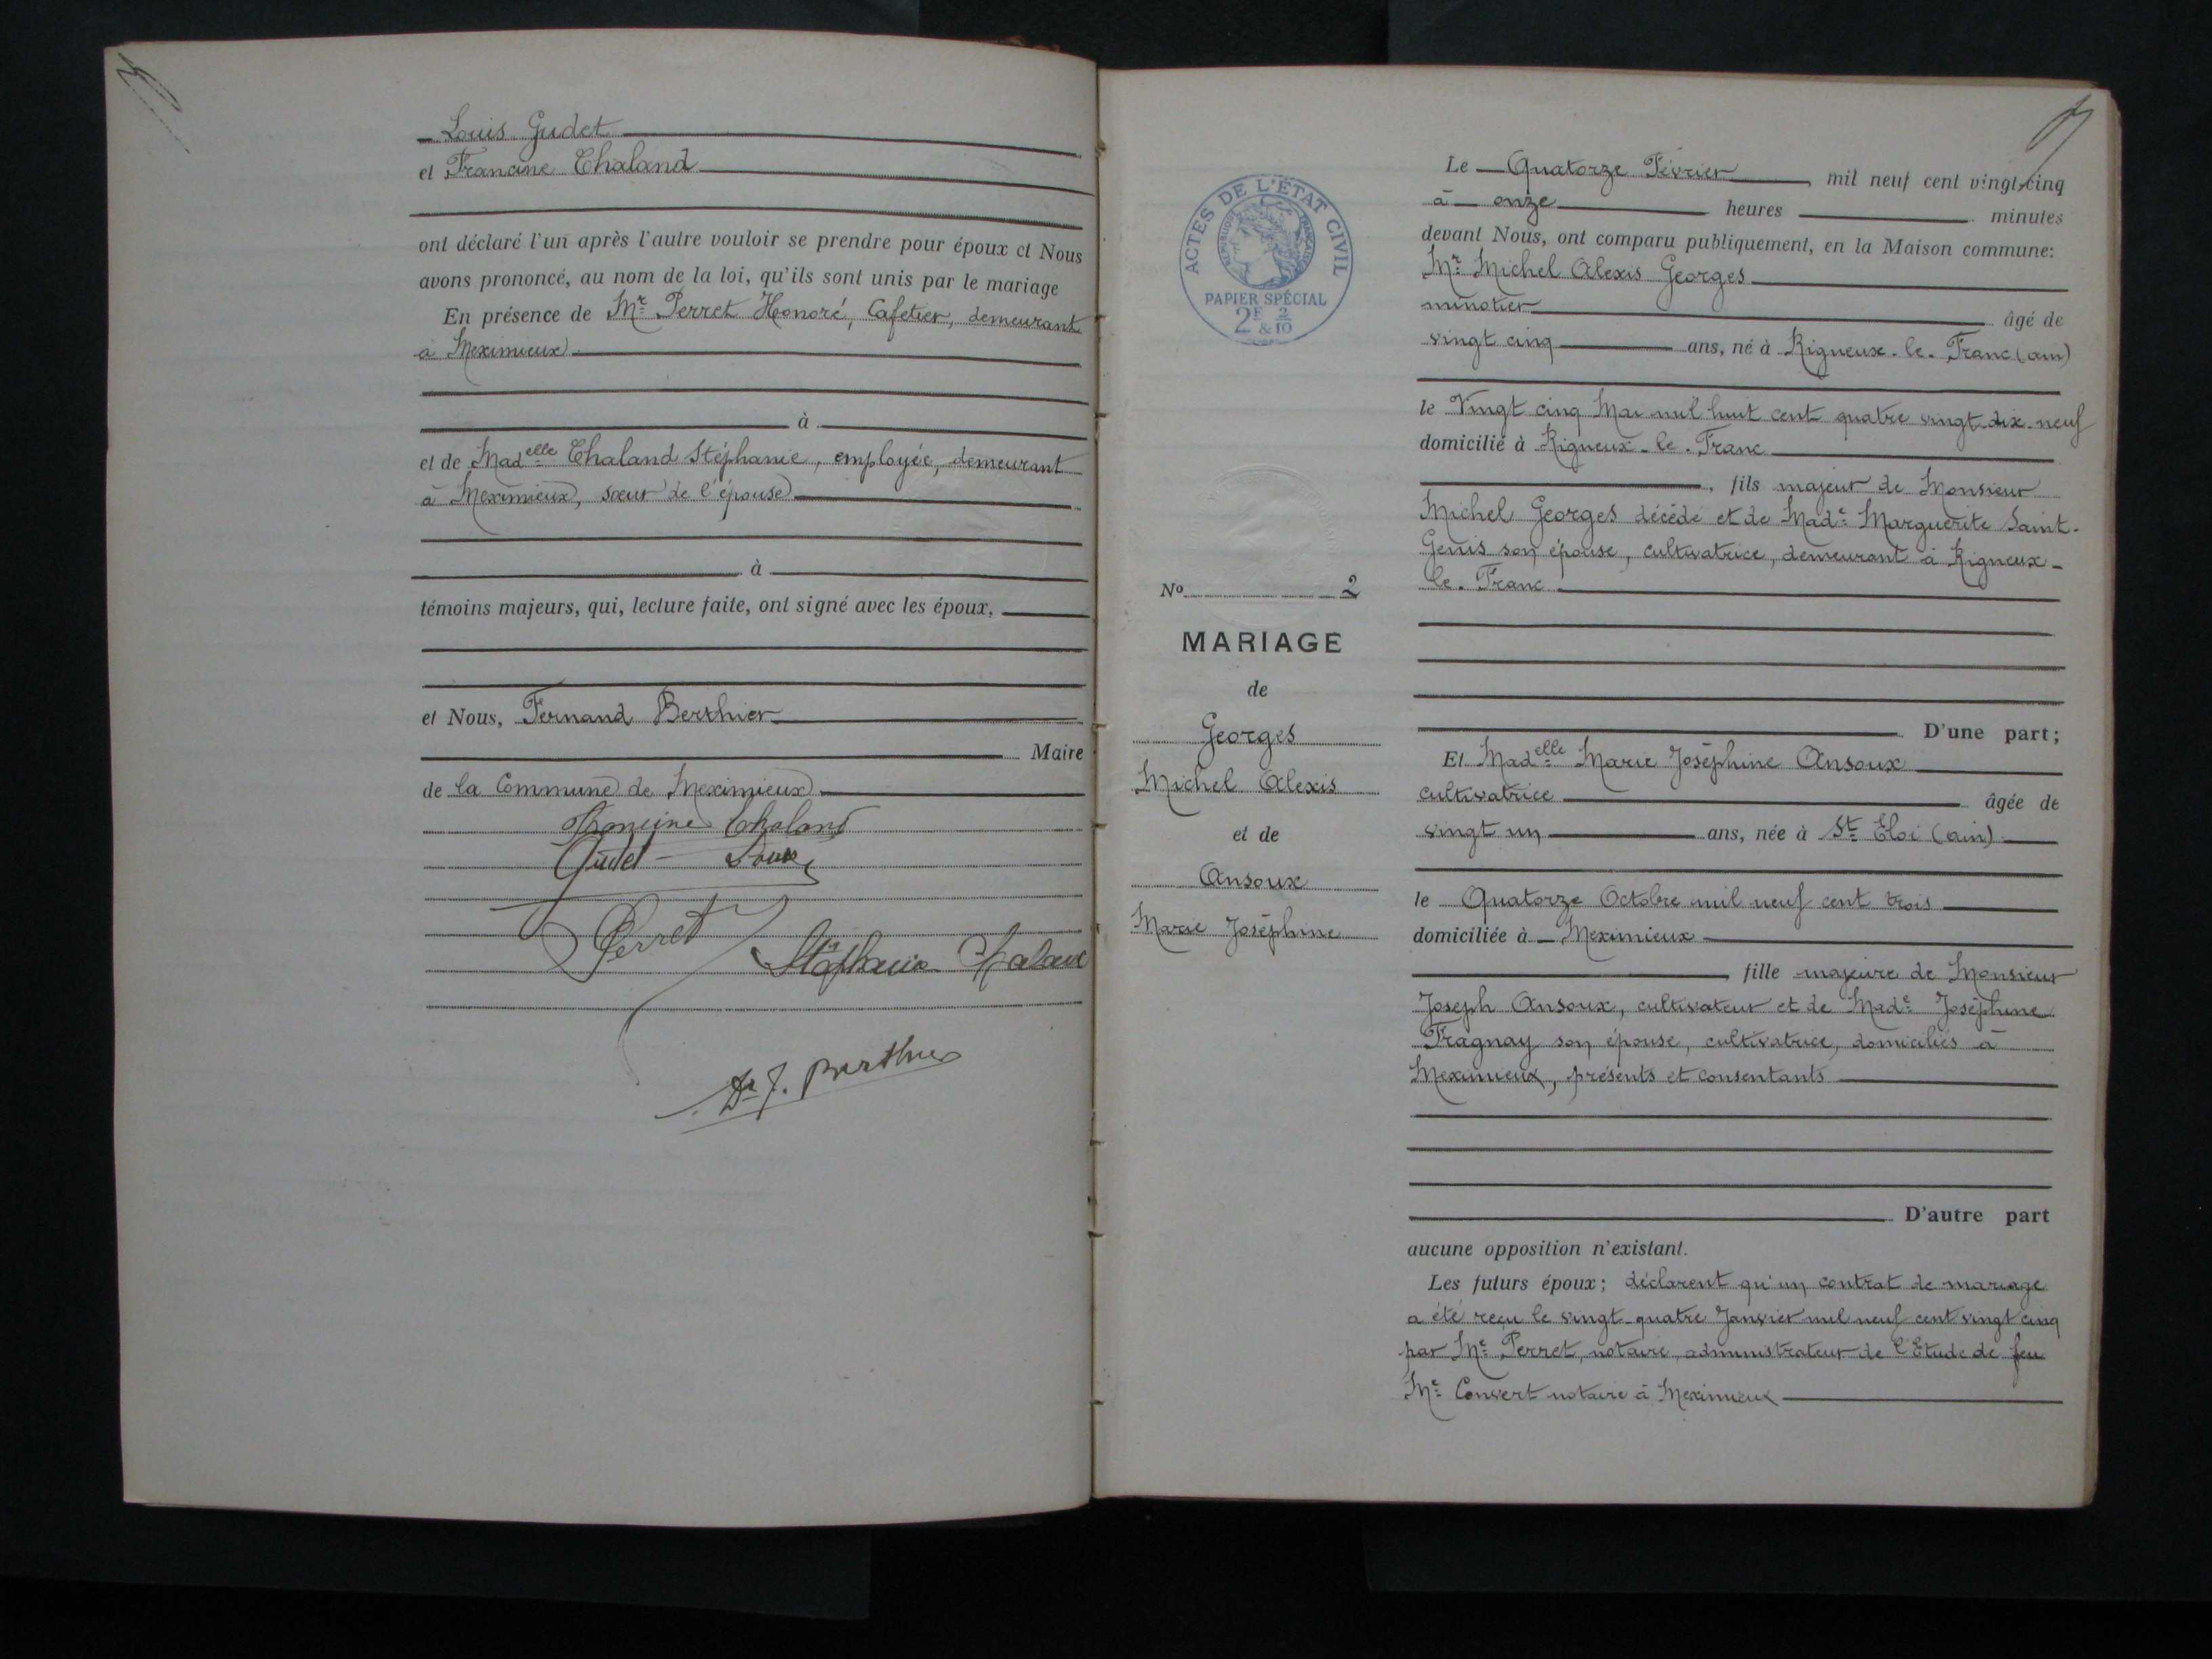 Louis Gudet
et Francine Chaland
ont déclaré l'un après l'autre vouloir se prendre pour époux et Nous
avons prononcé, au nom de la loi, qu'ils sont unis par le mariage
En présence de Mr Perret Honoré, Cafetier, demeurant
à Meximieux
à
et de Madelle Chaland Stéphanie, employée, demeurant
à Meximieux, sœur de l'épouse
à
témoins majeurs, qui, lecture faite, ont signé avec les époux,
et Nous, Fernand Berthier
Maire
de la Commune de Meximieux
Francine Chaland
Gudet Louis
Perret
Stéphanie Chaland
Dr F. Berthier
ACTES DE L'ÉTAT CIVIL
RÉPUBLIQUE FRANÇAISE
PAPIER SPÉCIAL
2F 2
& 10
No 2
MARIAGE
de
Georges
Michel Alexis
et de
Ansoux
Marie Joséphine
Le Quatorze Février mil neuf cent vingt-cinq
à onze heures minutes
devant Nous, ont comparu publiquement, en la Maison commune:
Mr Michel Alexis Georges
minotier âgé de
vingt cinq ans, né à Rigneux-le-Franc (ain)
le Vingt cinq Mai mil huit cent quatre vingt-dix-neuf
domicilié à Rigneux-le-Franc
, fils majeur de Monsieur
Michel Georges décédé et de Made Marguerite Saint-
Genis son épouse, cultivatrice, demeurant à Rigneux-
le-Franc
D'une part;
Et Madelle Marie Joséphine Ansoux
cultivatrice âgée de
vingt un ans, née à St Eloi (ain)
le Quatorze Octobre mil neuf cent trois
domiciliée à Meximieux
fille majeure de Monsieur
Joseph Ansoux, cultivateur et de Made Joséphine
Fragnay son épouse, cultivatrice, domiciliés à
Meximieux, présents et consentants
D'autre part
aucune opposition n'existant.
Les futurs époux; déclarent qu'un contrat de mariage
a été reçu le vingt-quatre Janvier mil neuf cent vingt cinq
par Me Perret, notaire, administrateur de l'Etude de feu
Me Convert notaire à Meximieux